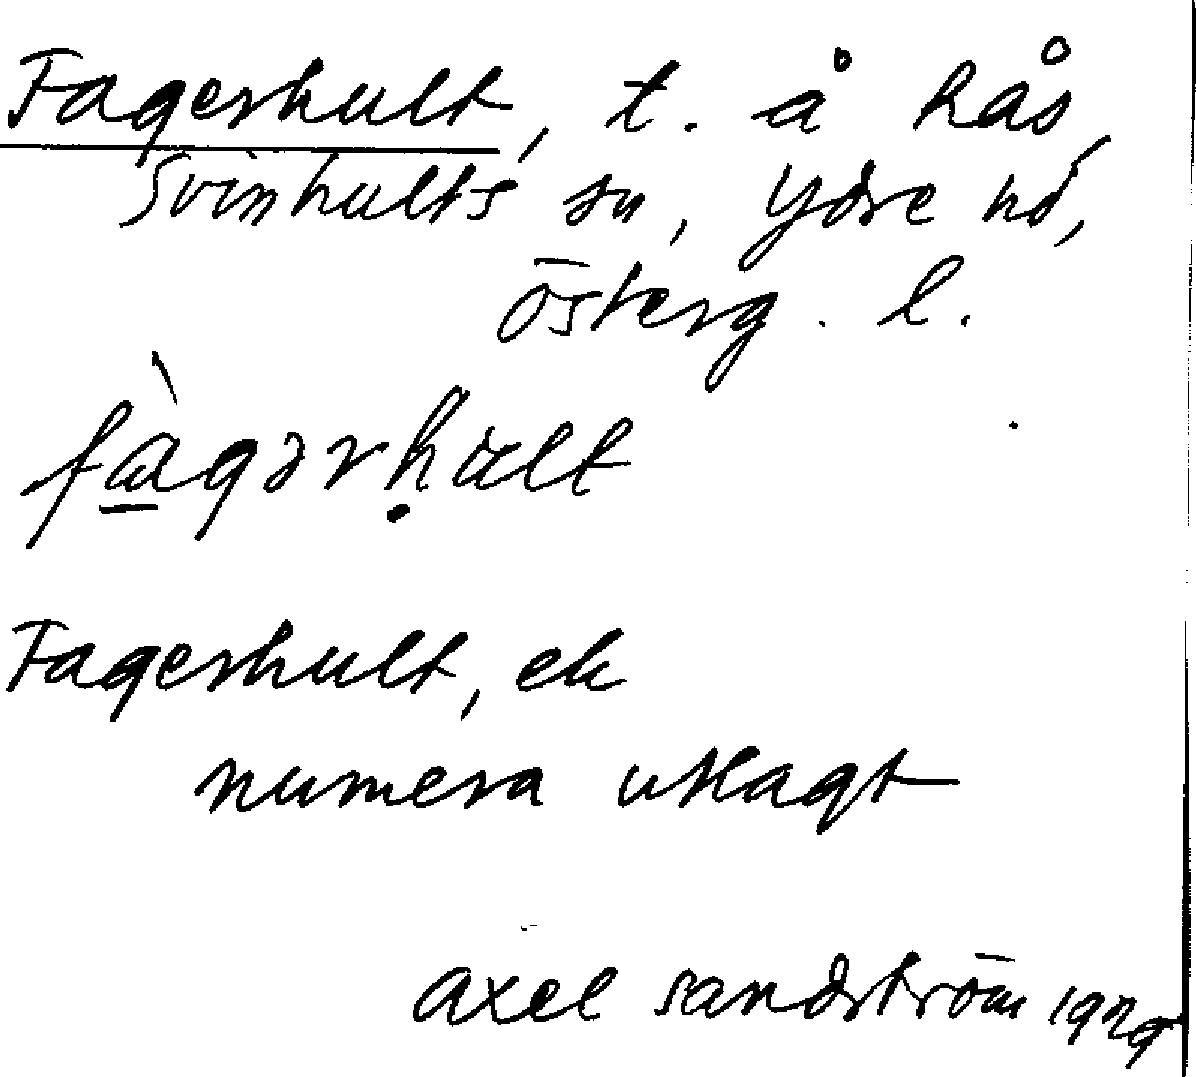 Fagerhult, t. å Kås
Svinhults sn, Ydre hd,
Österg. l.
fàgərhult
Fagerhult, ek
numera utlagt
Axel Sandström 1929